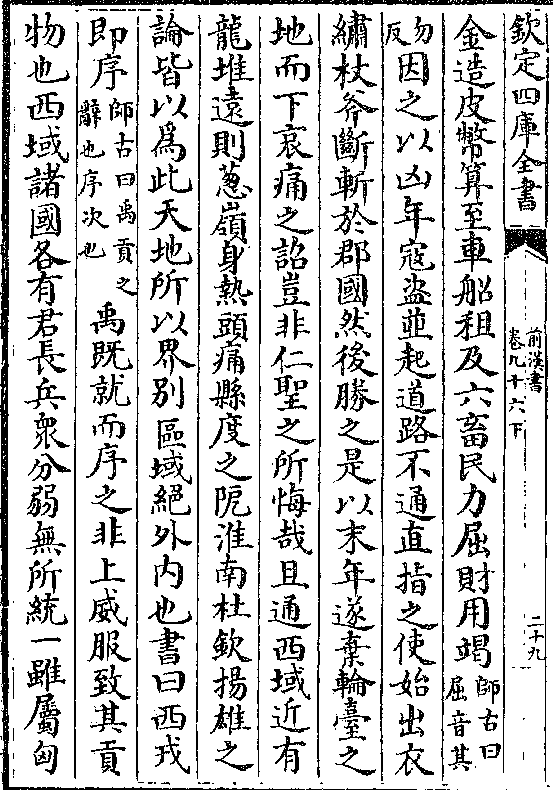 欽定四庫全書
前漢書
卷九十六下
二十九
金造皮幣算至車船租及六畜民力屈財用竭師古曰屈音其
勿反因之以凶年寇盜並起道路不通直指之使始出衣
繡杖斧斷斬於郡國然後勝之是以末年遂棄輪臺之
地而下哀痛之詔豈非仁聖之所悔哉且通西域近有
龍堆遠則葱嶺身熱頭痛縣度之阨淮南杜欽揚雄之
論皆以爲此天地所以界別區域絕外內也書曰西戎
即序師古曰禹貢之辭也序次也禹既就而序之非上威服致其貢
物也西域諸國各有君長兵衆分弱無所統一雖屬匈